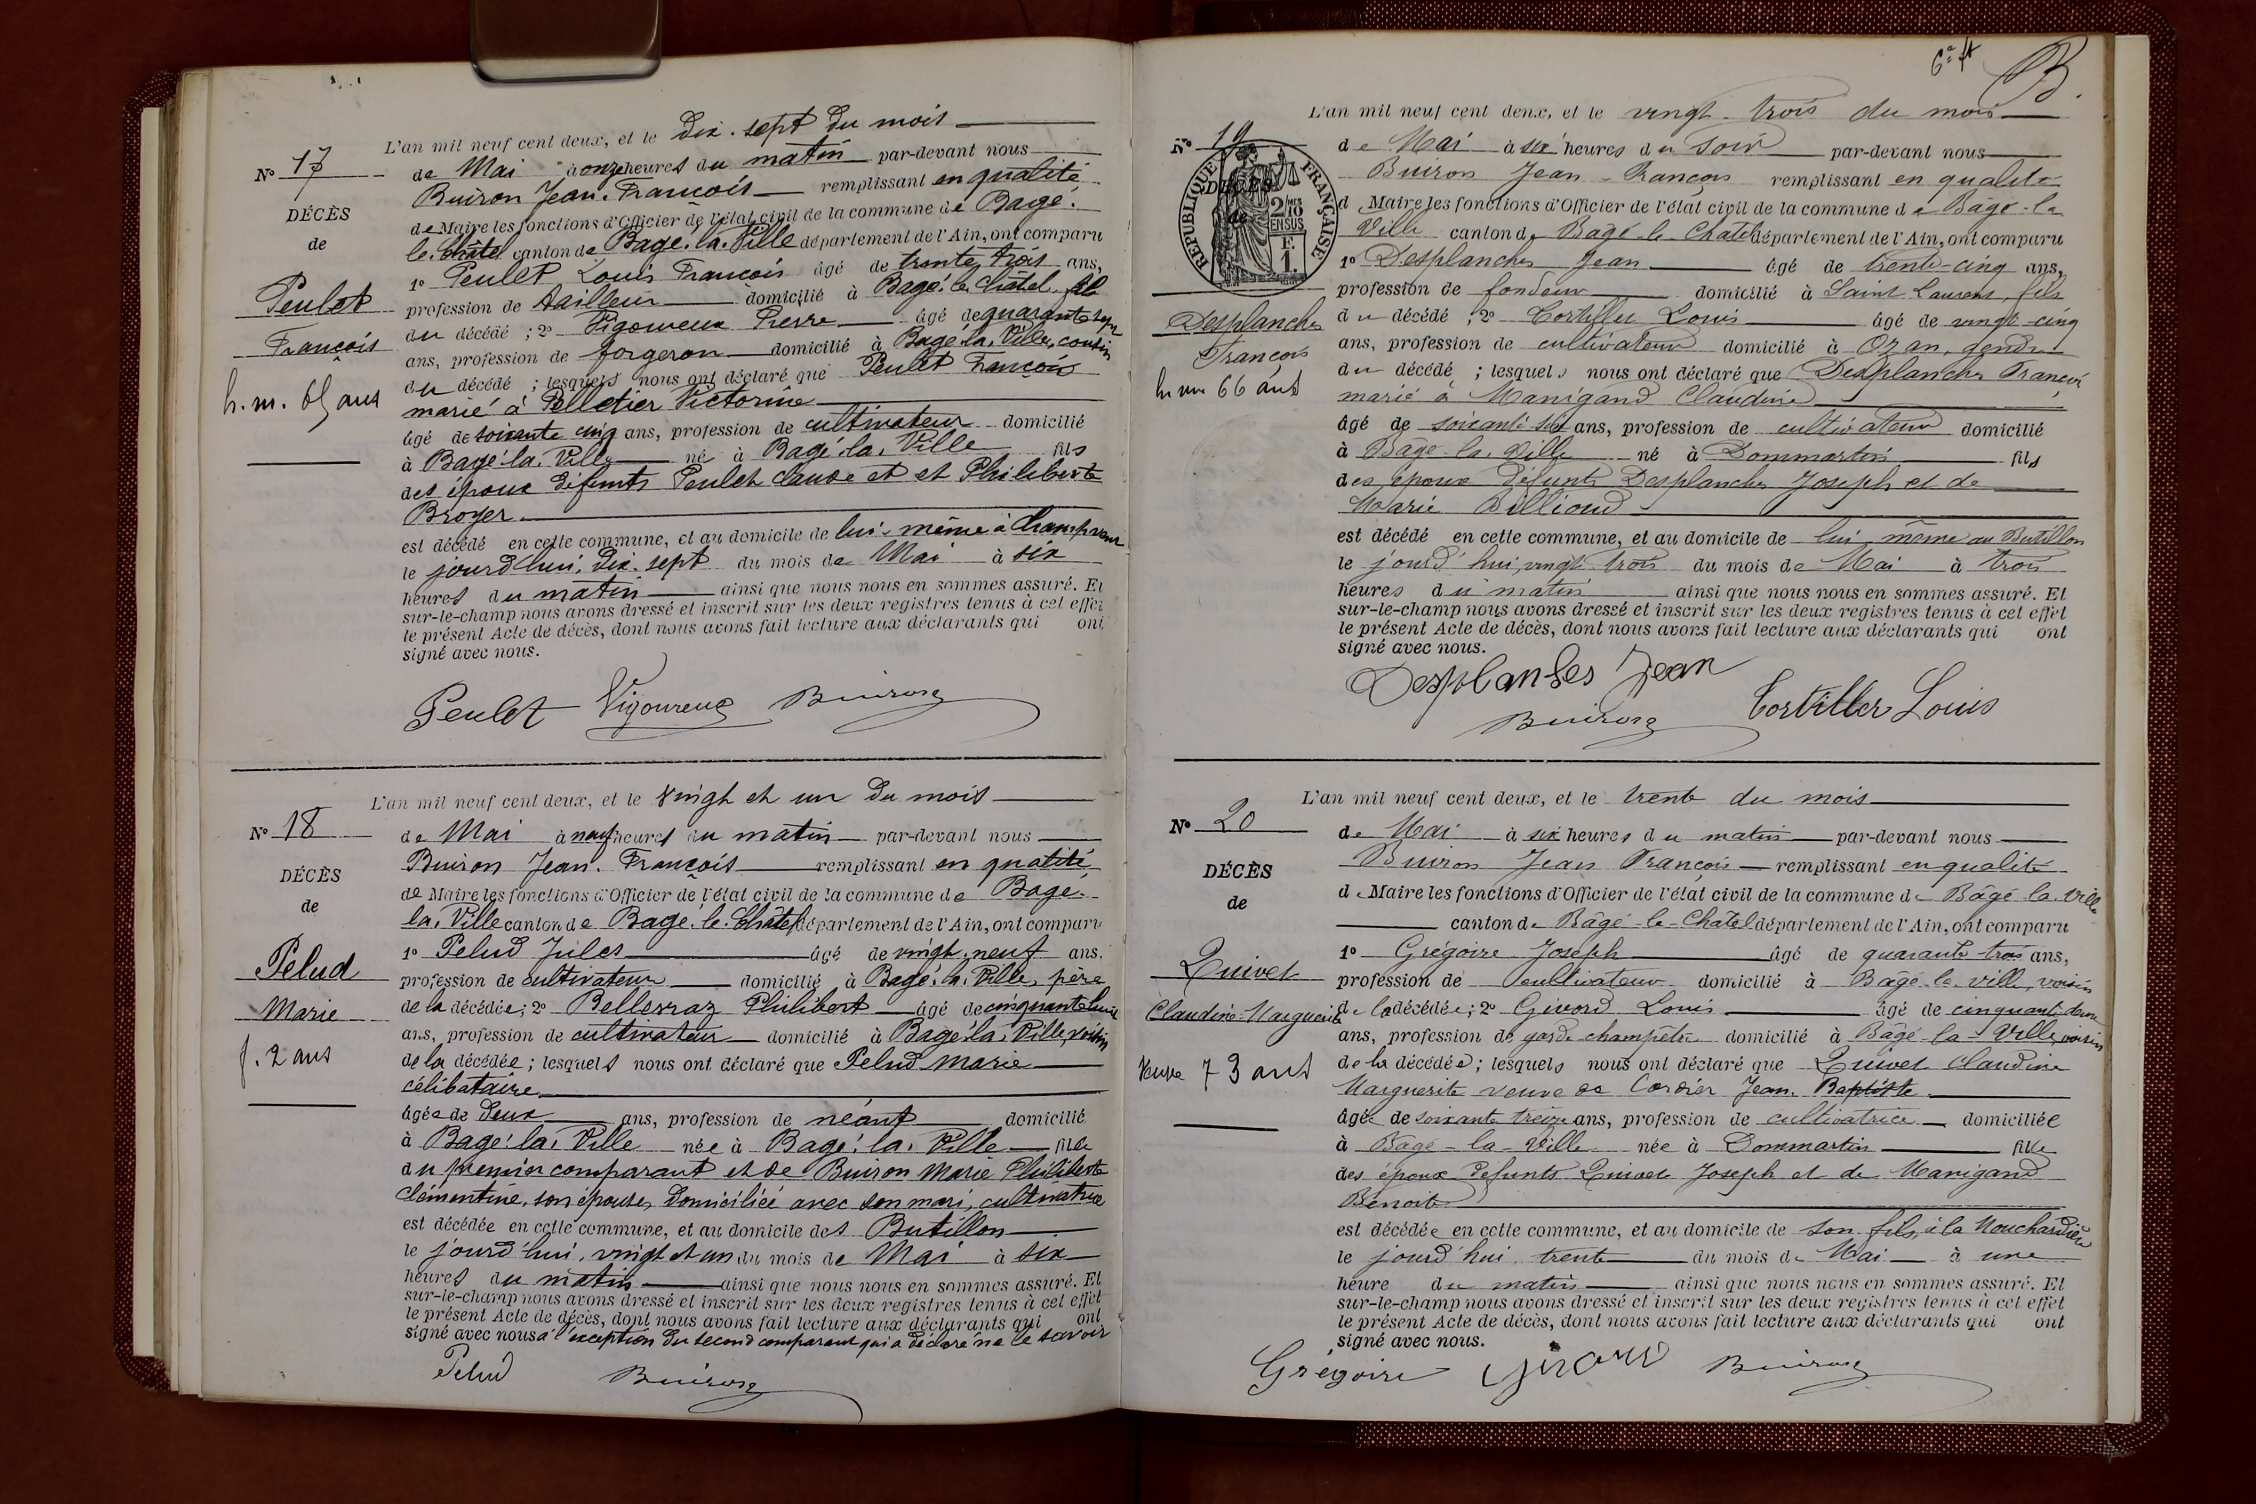 L'an mil neuf cent deux, et le dix-sept du mois
N° 17
de Mai à onze heures du matin par-devant nous
Buiron Jean-François remplissant en qualité
DÉCÈS
de Maire les fonctions d'Officier de l'état civil de la commune de Bagé-
de
le-Châtel canton de Bagé-la-Ville département de l'Ain, ont comparu
1° Peulet Louis François âgé de trente trois ans,
Peulet
profession de tailleur domicilié à Bagé-le-Châtel, fils
du décédé ; 2° Vigoureux Pierre âgé de quarante sept
François
ans, profession de forgeron domicilié à Bagé-la-Ville, cousin
du décédé ; lesquels nous ont déclaré que Peulet François
h. m. 65 ans
marié à Pelletier Victorine
âgé de soixante cinq ans, profession de cultivateur domicilié
à Bagé-la-Ville né à Bagé-la-Ville fils
des époux défunts Peulet Claude et et Philiberte
Broyer
est décédé en cette commune, et au domicile de lui-même à
le jourd'hui, dix-sept du mois de Mai à six
heures du matin ainsi que nous nous en sommes assuré. Et
sur-le-champ nous avons dressé et inscrit sur les deux registres tenus à cet effet
le présent Acte de décès, dont nous avons fait lecture aux déclarants qui ont
signé avec nous.
Peulet Vigoureux Buiron
L'an mil neuf cent deux, et le vingt et un du mois
N° 18
de Mai à neuf heures du matin par-devant nous
Buiron Jean-François remplissant en qualité
DÉCÈS
de Maire les fonctions d'Officier de l'état civil de la commune de Bagé-
de
la-Ville canton de Bagé-le-Châtel département de l'Ain, ont comparu
1° Pelud Jules âgé de vingt-neuf ans,
Pelud
profession de cultivateur domicilié à Bagé-la-Ville, père
de la décédée ; 2° Philibert âgé de cinquante huit
Marie
ans, profession de cultivateur domicilié à Bagé-la-Ville, voisin
f. 2 ans
de la décédée ; lesquels nous ont déclaré que Pelud Marie
célibataire
âgée de deux ans, profession de néant domicilié
à Bagé-la-Ville née à Bagé-la-Ville fille
du premier comparant et de Buiron Marie Philiberte
Clémentine, son épouse, domiciliée avec son mari, cultivatrice
est décédée en cette commune, et au domicile des Butillon
le jourd'hui, vingt et un du mois de Mai à six
heures du matin ainsi que nous nous en sommes assuré. Et
sur-le-champ nous avons dressé et inscrit sur les deux registres tenus à cet effet
le présent Acte de décès, dont nous avons fait lecture aux déclarants qui ont
signé avec nous à l'exception du second comparant qui a déclaré ne le savoir
Pelud Buiron
L'an mil neuf cent deux, et le vingt-trois du mois
N° 19
de Mai à six heures du soir par-devant nous
Buiron Jean-François remplissant en qualité
RÉPUBLIQUE FRANÇAISE
DÉCÈS
de
2/10 EN SUS
F. 1.
d Maire les fonctions d'Officier de l'état civil de la commune de Bagé-la-
Ville canton de Bagé-le-Châtel département de l'Ain, ont comparu
1° Desplanches Jean âgé de trente-cinq ans,
profession de fondeur domicilié à Saint Laurent, fils
Desplanches
du décédé ; 2° Cortiller Louis âgé de vingt-cinq
ans, profession de cultivateur domicilié à Ozan, gendre
François
du décédé ; lesquels nous ont déclaré que Desplanches François
h. m. 66 ans
marié à Manigand Claudine
âgé de soixante six ans, profession de cultivateur domicilié
à Bâgé-la-Ville né à Dommartin fils
des époux défunts Desplanches Joseph et de
Marie Billioud
est décédé en cette commune, et au domicile de lui-même au Butillon
le jourd'hui, vingt-trois du mois de Mai à trois
heures du matin ainsi que nous nous en sommes assuré. Et
sur-le-champ nous avons dressé et inscrit sur les deux registres tenus à cet effet
le présent Acte de décès, dont nous avons fait lecture aux déclarants qui ont
signé avec nous.
Desplanches Jean
Buiron Cortiller Louis
L'an mil neuf cent deux, et le trente du mois
N° 20
de Mai à six heures du matin par-devant nous
Buiron Jean François remplissant en qualité
DÉCÈS
de Maire les fonctions d'Officier de l'état civil de la commune de Bâgé-la-Ville
de
canton de Bâgé-le-Châtel département de l'Ain, ont comparu
1° Grégoire Joseph âgé de quarante-trois ans,
Quivet
profession de cultivateur domicilié à Bâgé-la-Ville, voisin
Claudine-Marguerite
de la décédée ; 2° Givord Louis âgé de cinquante-deux
ans, profession de garde champêtre domicilié à Bâgé-la-Ville, voisin
Veuve 73 ans
de la décédée ; lesquels nous ont déclaré que Quivet Claudine
Marguerite veuve de Cordier Jean-Baptiste
âgée de soixante treize ans, profession de cultivatrice domiciliée
à Bâgé-la-Ville née à Dommartin fille
des époux défunts Quivet Joseph et de Manigand
Benoite
est décédée en cette commune, et au domicile de son fils, à la Mouchardière
le jourd'hui trente du mois de Mai à une
heure du matin ainsi que nous nous en sommes assuré. Et
sur-le-champ nous avons dressé et inscrit sur les deux registres tenus à cet effet
le présent Acte de décès, dont nous avons fait lecture aux déclarants qui ont
signé avec nous.
Grégoire Givord Buiron